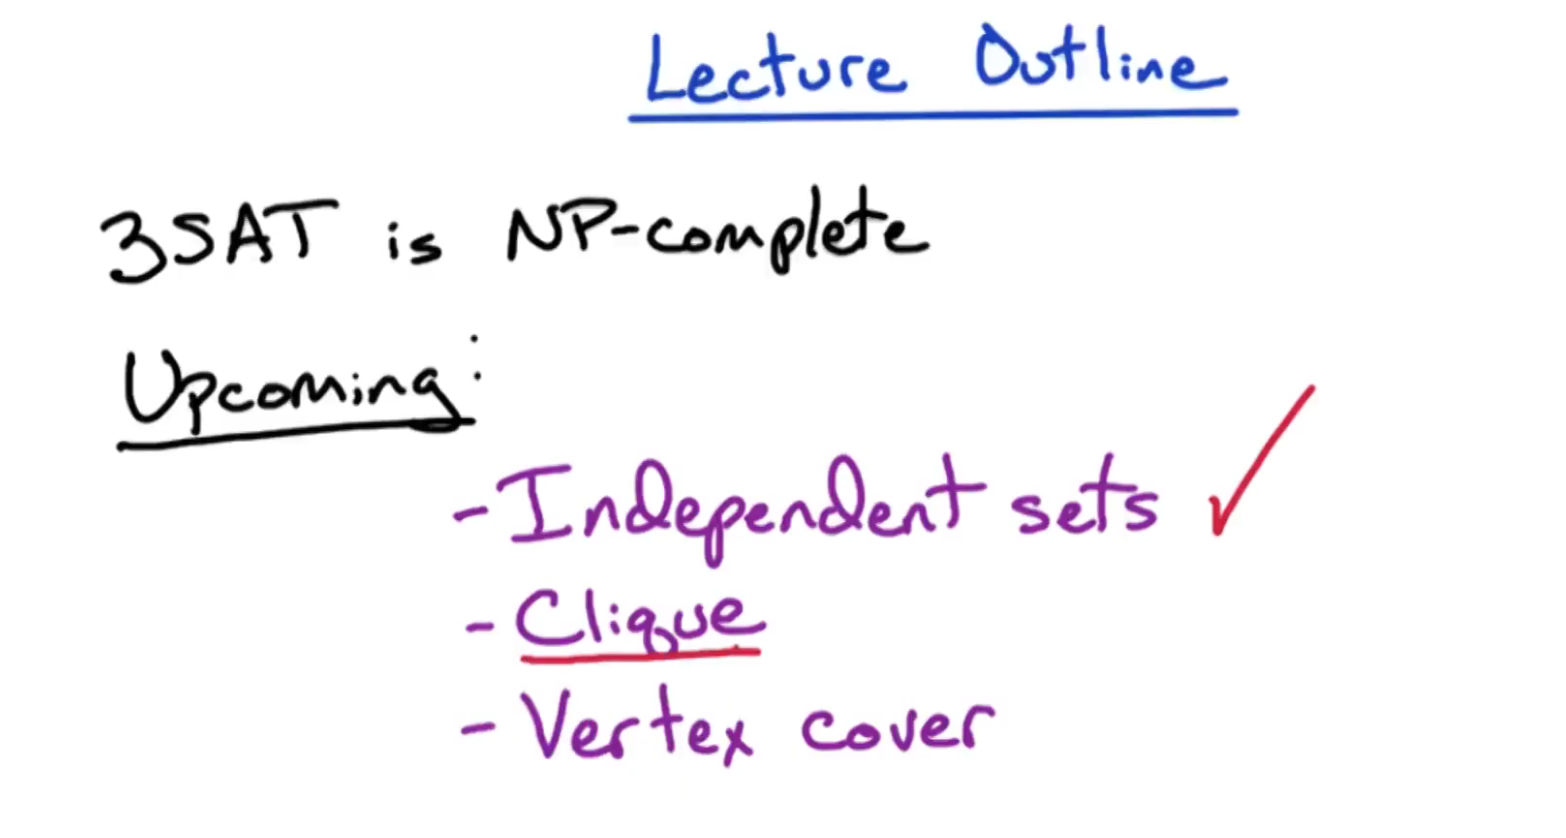 Lecture Outline
3SAT is NP-complete
Upcoming:
- Independent sets ✓
- Clique
- Vertex cover